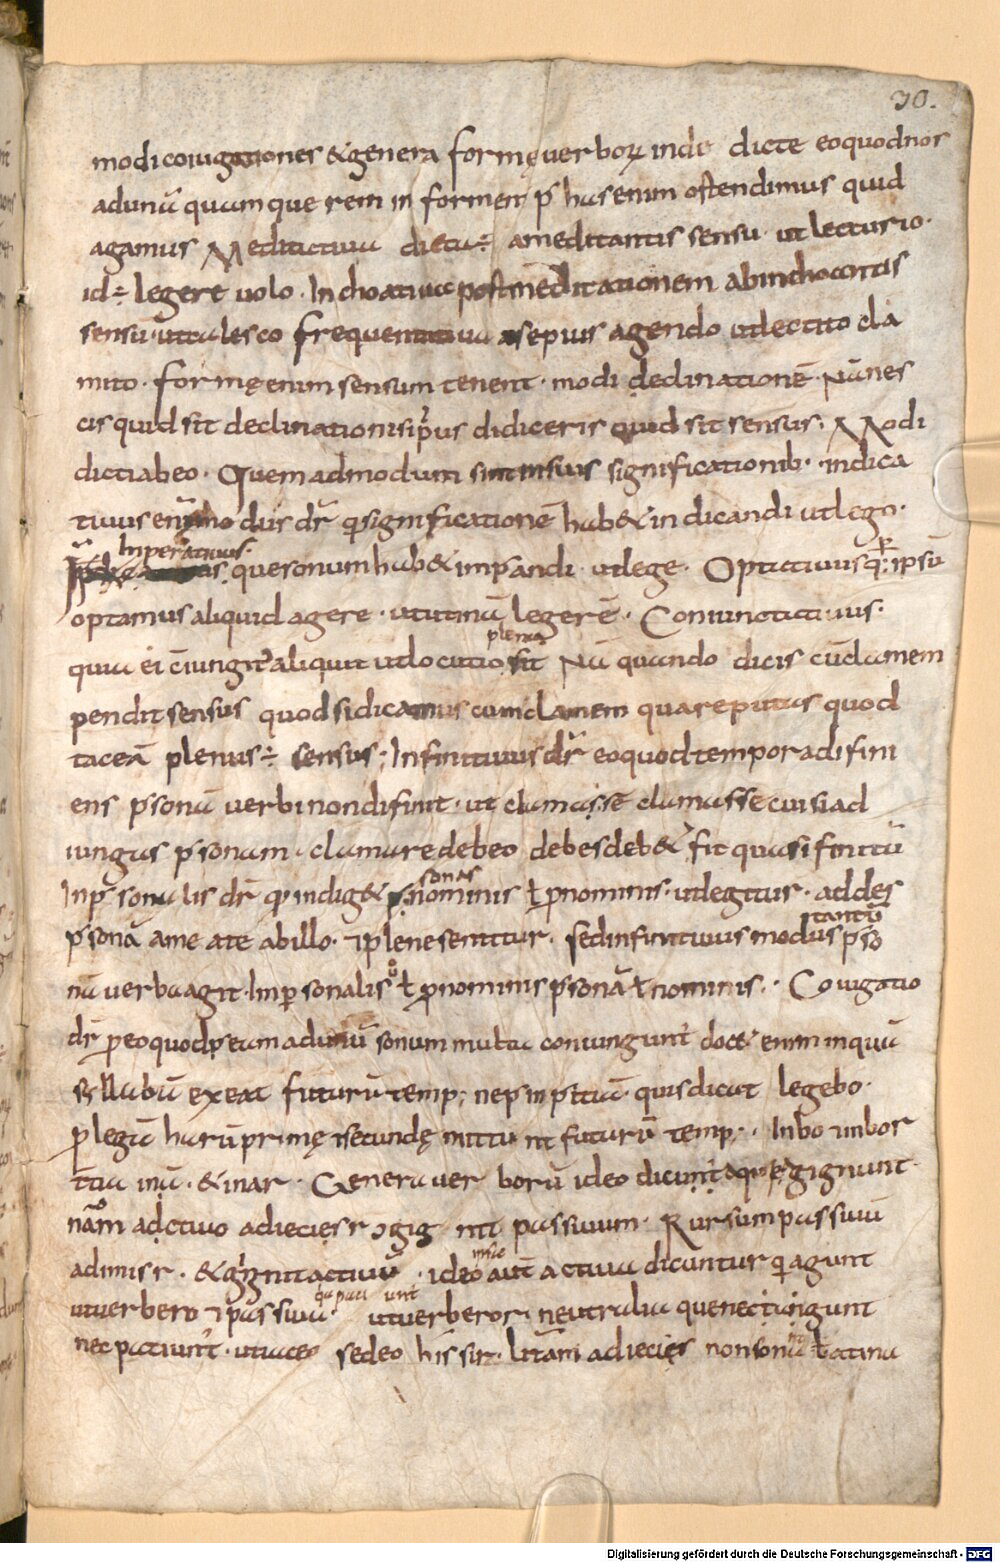 30.
modi coiugationes & genera formę uerboꝝ inde dicte eo quod nos
ad unā quamque rem in formen p̄ has enim ostendimus quid
agamus Meditatiua dicta ÷ a meditantis sensu ut lecturio.
id ÷ legere uolo. Inchoatiua post meditationem ab inchoantis
sensu ut calesco frequentatiua a sepius agendo ut lectito cla
mito. formę enim sensum tenent. modi declinationē. Nā nes
cis quid sit declinationis ip̄us didiceris quid sit sensus. Modi
dicti ab eo. Quem ad modum sint in suis significationib. indica
tiuus enim modus dr̄ q significationē hab& indicandi ut lego.
Inperatiuus.
que sonum hab& imp̄andi ut lege. Optatiuus q: ipsū
optamus aliquid agere. ut utinā legerē. Coniunctiuus.
plena
quia ei ciungit̄ aliquit ut locutio sit Nā quando dicis cū clamem
pendit sensus quod si dicamus cum clamem quare putas quod
taceā plenus ÷ sensus; Infinitiuus dr̄ eo quod tempora difini
ens p̱sonā uerbi non difinit. ut clamasse clamasse cui si ad
iungas p̱sonam. clamare debeo debes deb& fit quasi finitū
Inp̱sonalis dr̄ q indig& nominis ł p̱nominis. ut legitur. addes
sonas
p̱sonā a me a te ab illo. & plene sentitur. sed infinitiuus modus p̱so
tantū
nā uerba agit. Inp̱sonalis ů ł p̱nominis p̱sonā ł nominis. Coiugatio
dr̄ p̱ eo quod p̱ eam ad unū sonum multa coniungunt̄ doc& enim in quā
syllabā exeat futurū temp; ne p̱ inp̱itiā quis dicat legebo.
p̱ legā harū primę & secundę mittunt futurū temp; In bo & in bor
t̄tia in ā. & in ar. Genera uerborū ideo dicunt̄ eo quod gignunt.
nā actiuo adiecies r & gignit passiuum. Rursum passiuū
adimis r. & gignit actiuū. ideo aut̄ actiua dicuntur q agunt
ut uerbero & passiua qa pati unt ut uerberor. neutralia que nec agunt
nec patiunt̄. ut iaceo sedeo his si r litā adiecies non sonat latina